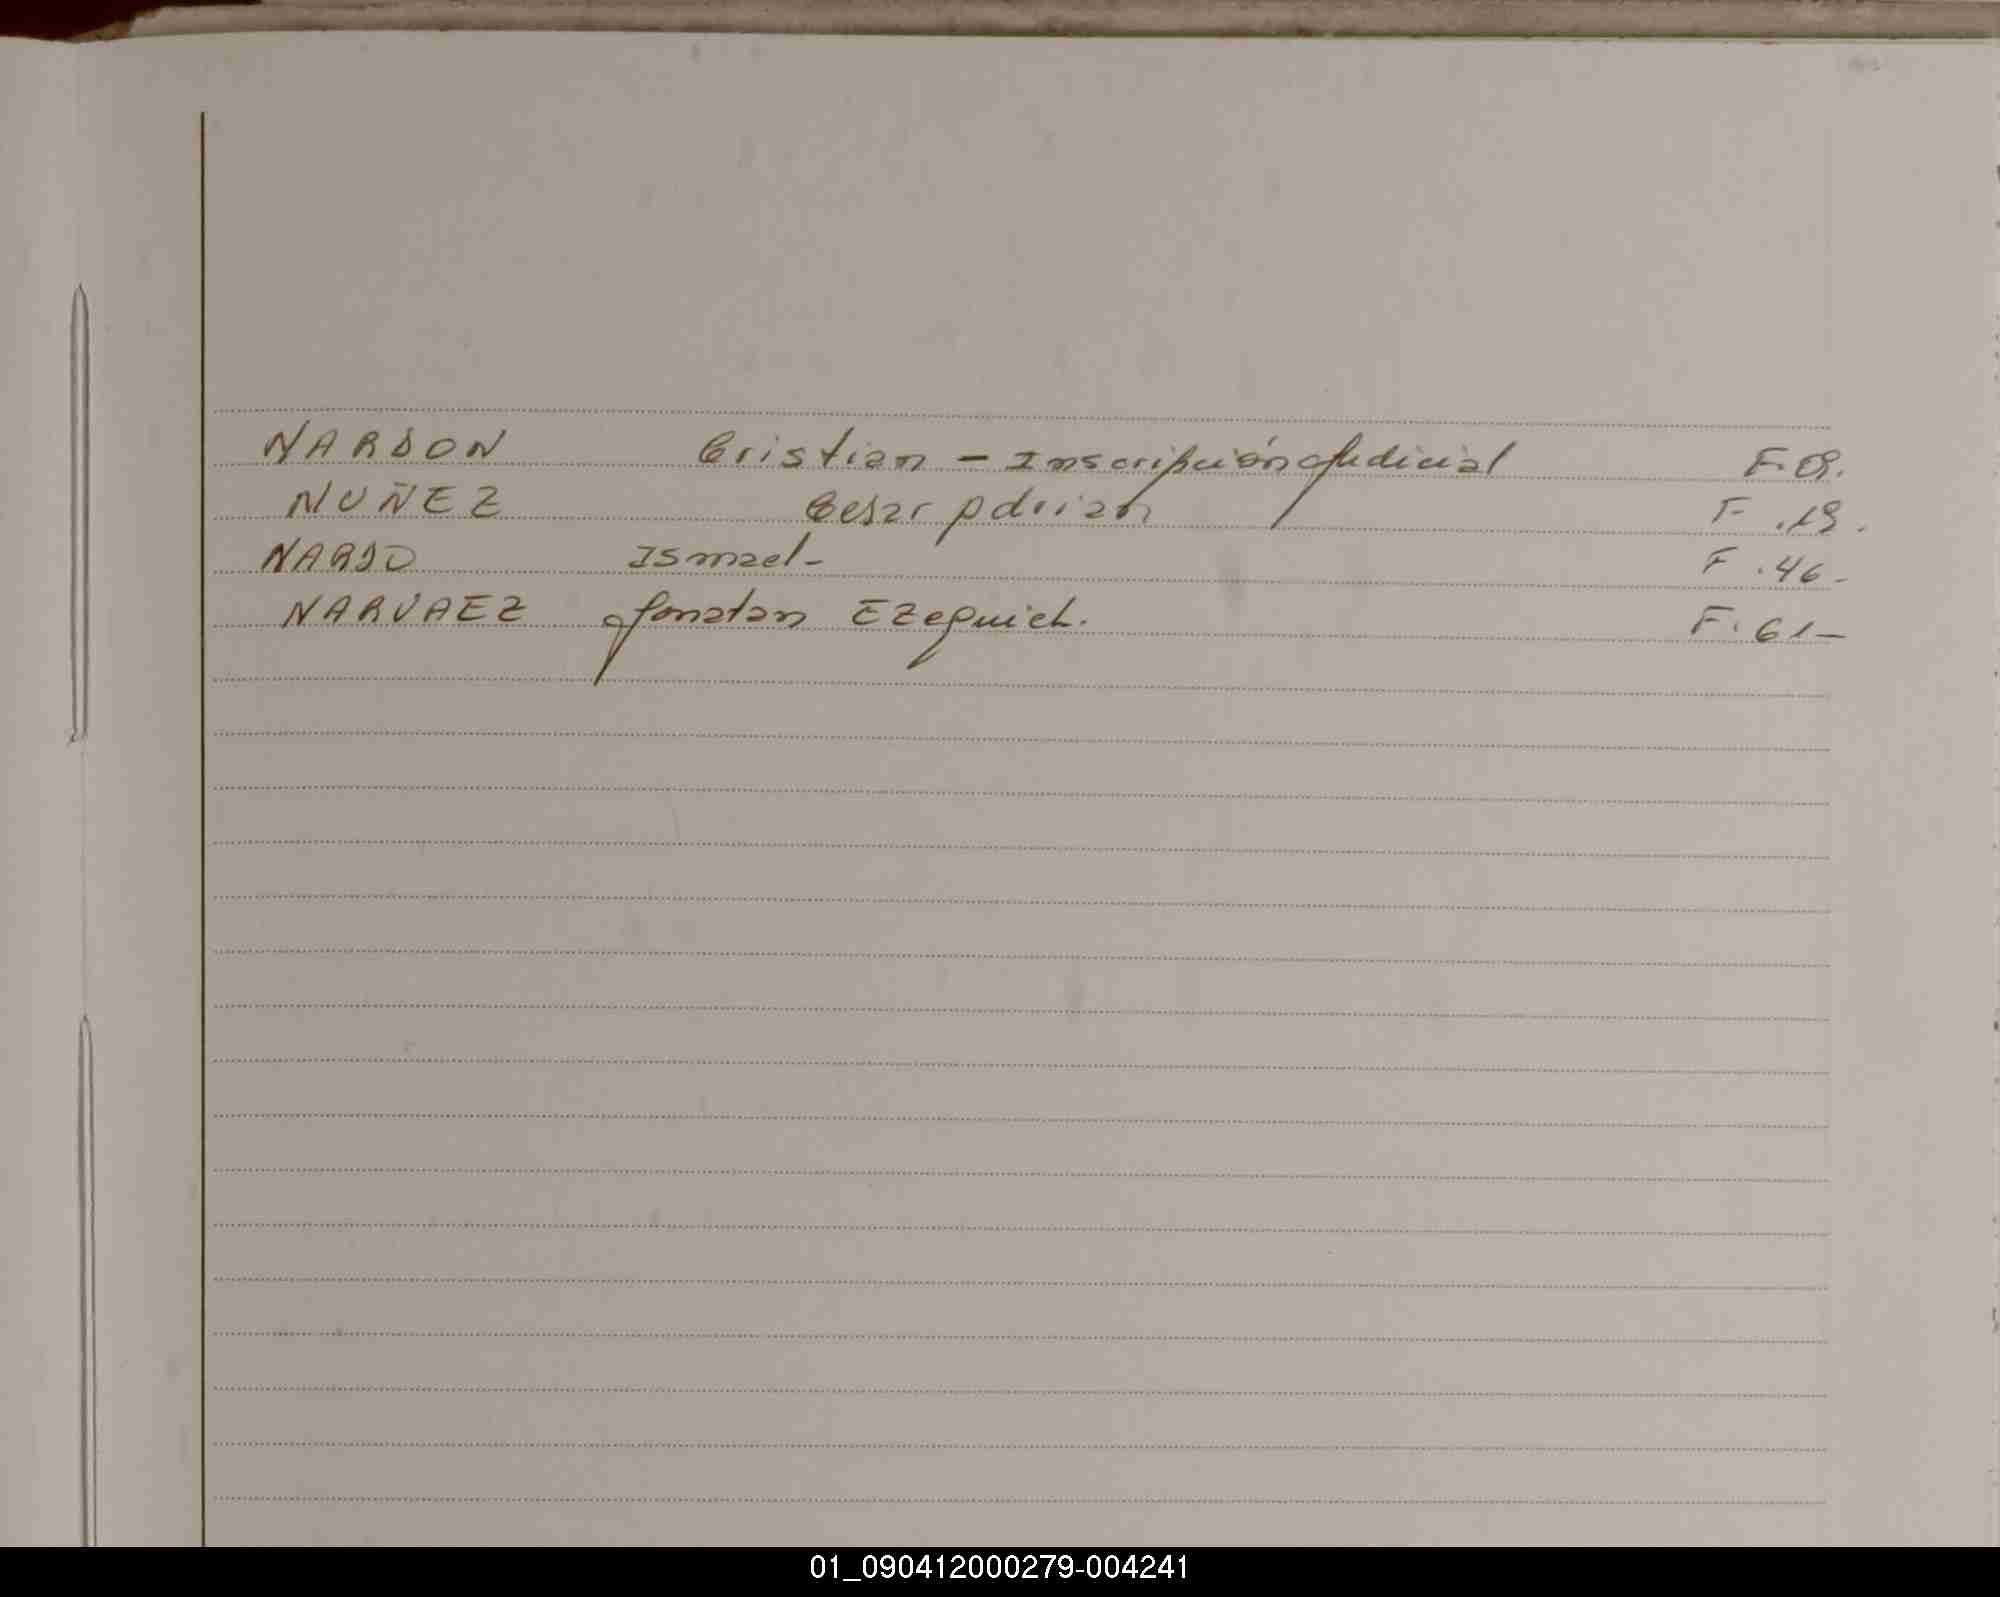 NARDON Cristian - Inscripción Judicial F. 09.
NUÑEZ Cesar Adrian F. 19.
NARDO Ismael- F. 46-
NARVAEZ Jonatan Ezequiel. F. 61-
01_090412000279-004241